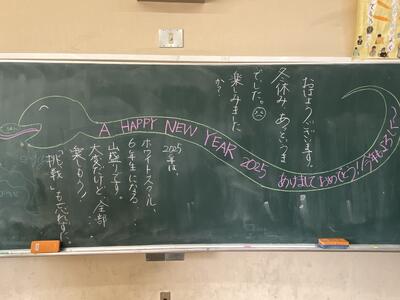 おはようございます。
冬休み、あっという
でした。☹
楽しみました
か？
A HAPPY NEW YEAR 2025 あけましておめでとう！！今年もよろしく
2025年は、
ホワイトスクール、
6年生になる…
山盛りです。
大変だけど、全部
楽しもう！
「挑戦」も忘れずに